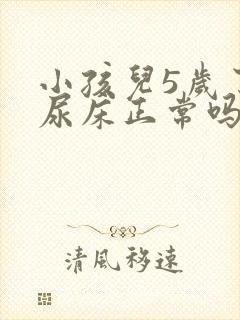 小孩兒5歲
尿床正常吗
清風移速